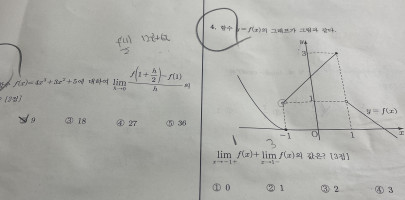 f'(1) 12x²+6x
함수 f(x)=4x³+3x²+5에 대하여 lim h→0 f(1+h/2)-f(1) / h 의
[3점]
9 ③ 18 ④ 27 ⑤ 36
4. 함수 y=f(x)의 그래프가 그림과 같다.
y
3
1
y=f(x)
-1 O 1 x
1 3
lim x→-1+ f(x)+lim x→1- f(x)의 값은? [3점]
① 0 ② 1 ③ 2 ④ 3